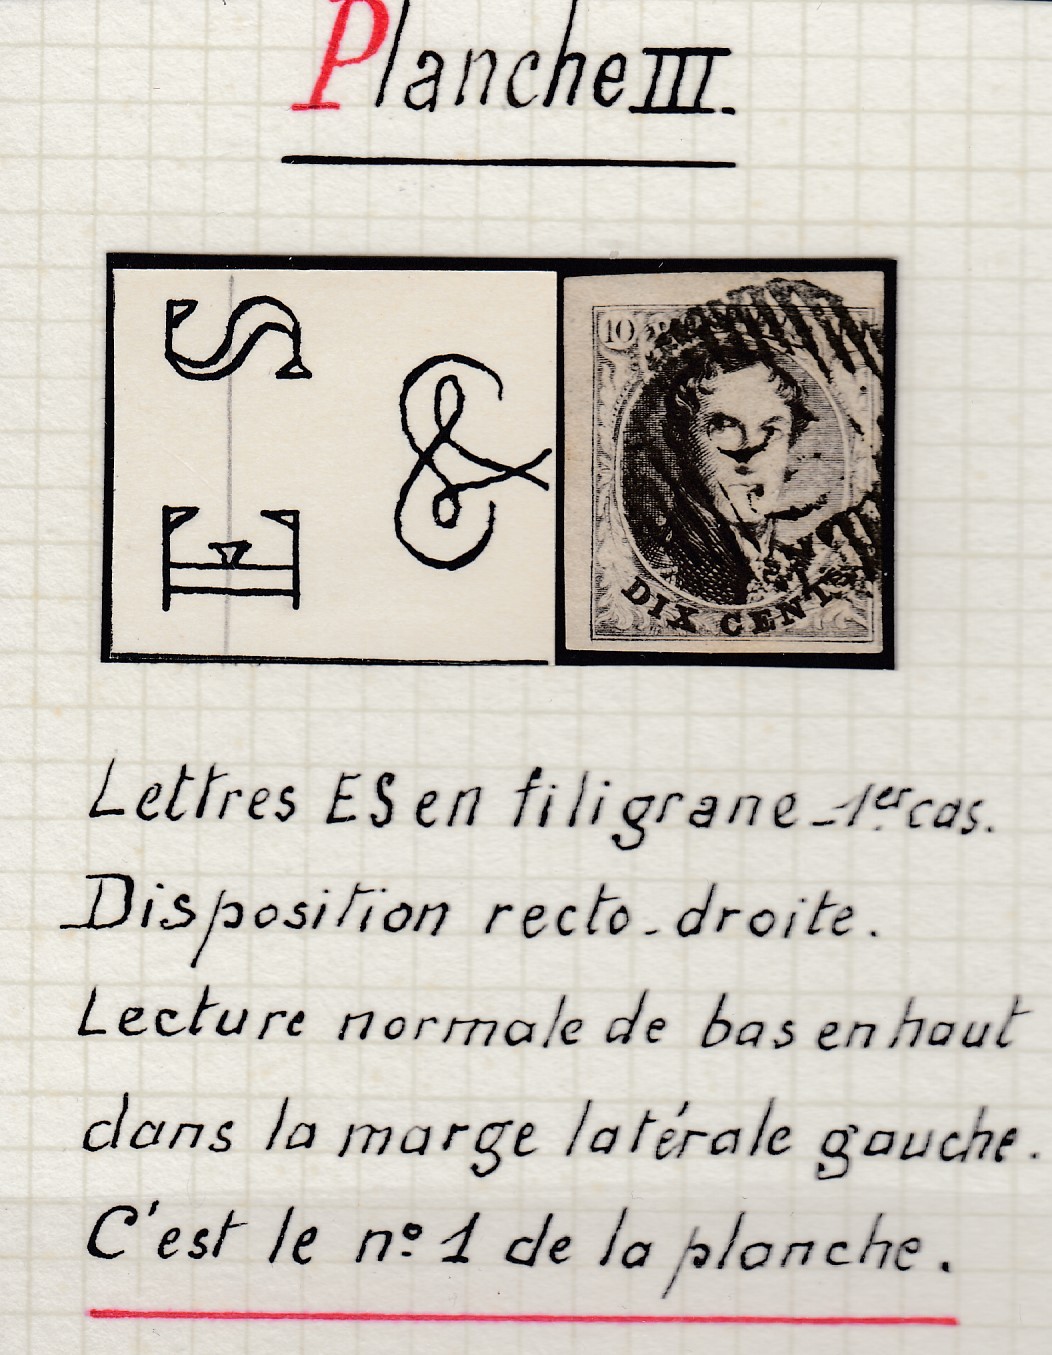 Planche III.
S
E
10
DIX CENTS
Lettres ES en filigrane - 1er cas.
Disposition recto-droite.
Lecture normale de bas en haut
dans la marge latérale gauche.
C'est le nº 1 de la planche.